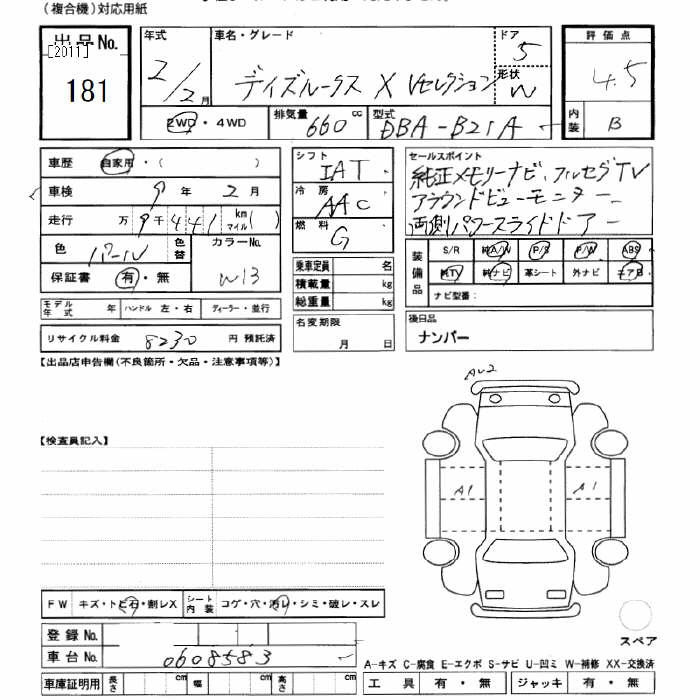 (複合機)対応用紙
出品No.
[2011]
181
年式
2/2月
車名・グレード
デイズルークス X Vセレクション
ドア
5
形状
W
2WD・4WD
排気量
660 cc
型式
DBA-B21A
評価点
4.5
内装
B
車歴 自家用・( )
車検 9年 2月
走行 万9千441 km マイル( )
色 パール
色替
カラーNo.
W13
保証書 有・無
モデル年式 年 ハンドル 左・右 ディーラー・並行
リサイクル料金 8230 円 預託済
シフト
IAT
冷房
AAC
燃料
G
乗車定員 名
積載量 kg
総重量 kg
名変期限
月 日
セールスポイント
純正メモリーナビ フルセグTV
アラウンドビューモニター
両側パワースライドドアー
装備品
S/R 純A/W P/S P/W ABS
純TV 純ナビ 革シート 外ナビ エアB
ナビ型番:
後日品
ナンバー
【出品店申告欄(不良箇所・欠品・注意事項等)】
【検査員記入】
A1
A1
スペア
FW キズ・トビ石・割レX
シート内装 コゲ・穴・汚レ・シミ・破レ・スレ
登録No.
車台No. 0608583
車庫証明用 長さ cm 幅 cm 高さ cm
A-キズ C-腐食 E-エクボ S-サビ U-凹ミ W-補修 XX-交換済
工具 有・無 ジャッキ 有・無